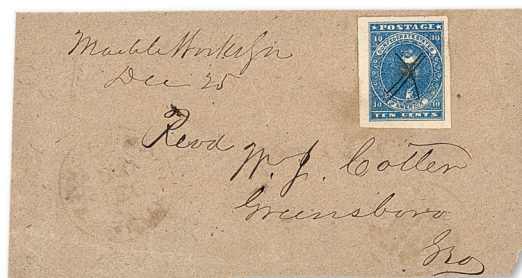 Marble Works Ga
Dec 25
POSTAGE
10 10
CONFEDERATE STATES
OF AMERICA
10 10
TEN CENTS
Revd
W. J. Cotter
Greensboro
Geo